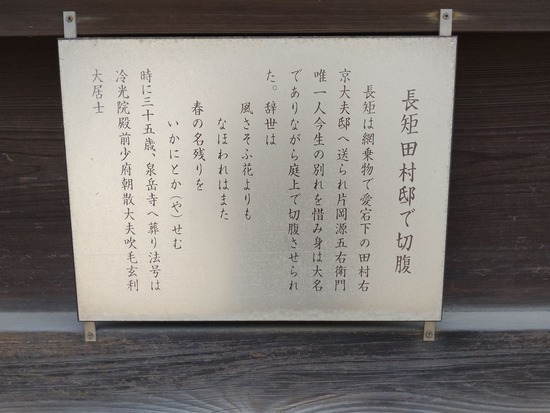 長矩田村邸で切腹
長矩は網乗物で愛宕下の田村右
京大夫邸へ送られ片岡源五右衛門
唯一人今生の別れを惜み身は大名
でありながら庭上で切腹させられ
た。辞世は
風さそふ花よりも
なほわれはまた
春の名残りを
いかにとか(や)せむ
時に三十五歳、泉岳寺へ葬り法号は
冷光院殿前少府朝散大夫吹毛玄利
大居士